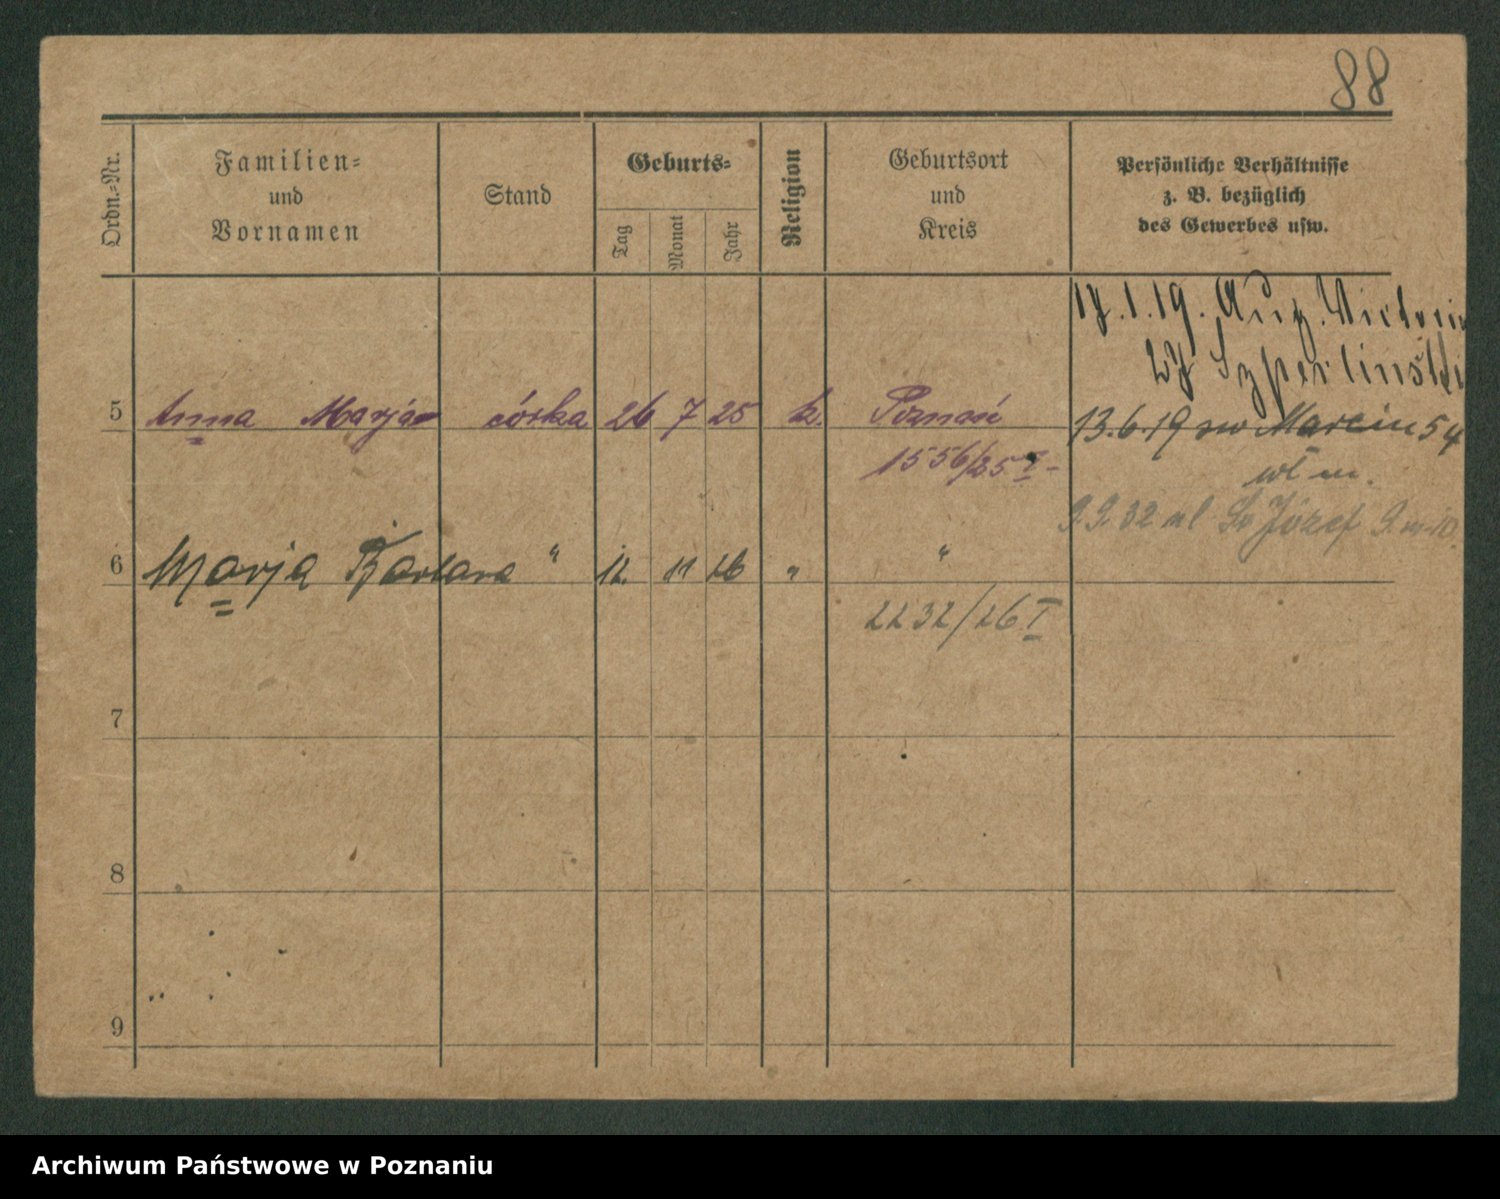 88
Ordn.-Nr.
Familien-
und
Vornamen
Stand
Geburts-
Tag
Monat
Jahr
Religion
Geburtsort
und
Kreis
Persönliche Verhältnisse
z. B. bezüglich
des Gewerbes usw.
17.1.19. Aug. Victoria
Szperlinski
5 Anna Marja córka 26 7 25 k. Poznań
13.6.19 św Marcin 54
1556/25 I
9.9.32 Św Józef
6 Marja Barbara " 12. 11 26 " "
2232/26 I
7
8
9
Archiwum Państwowe w Poznaniu